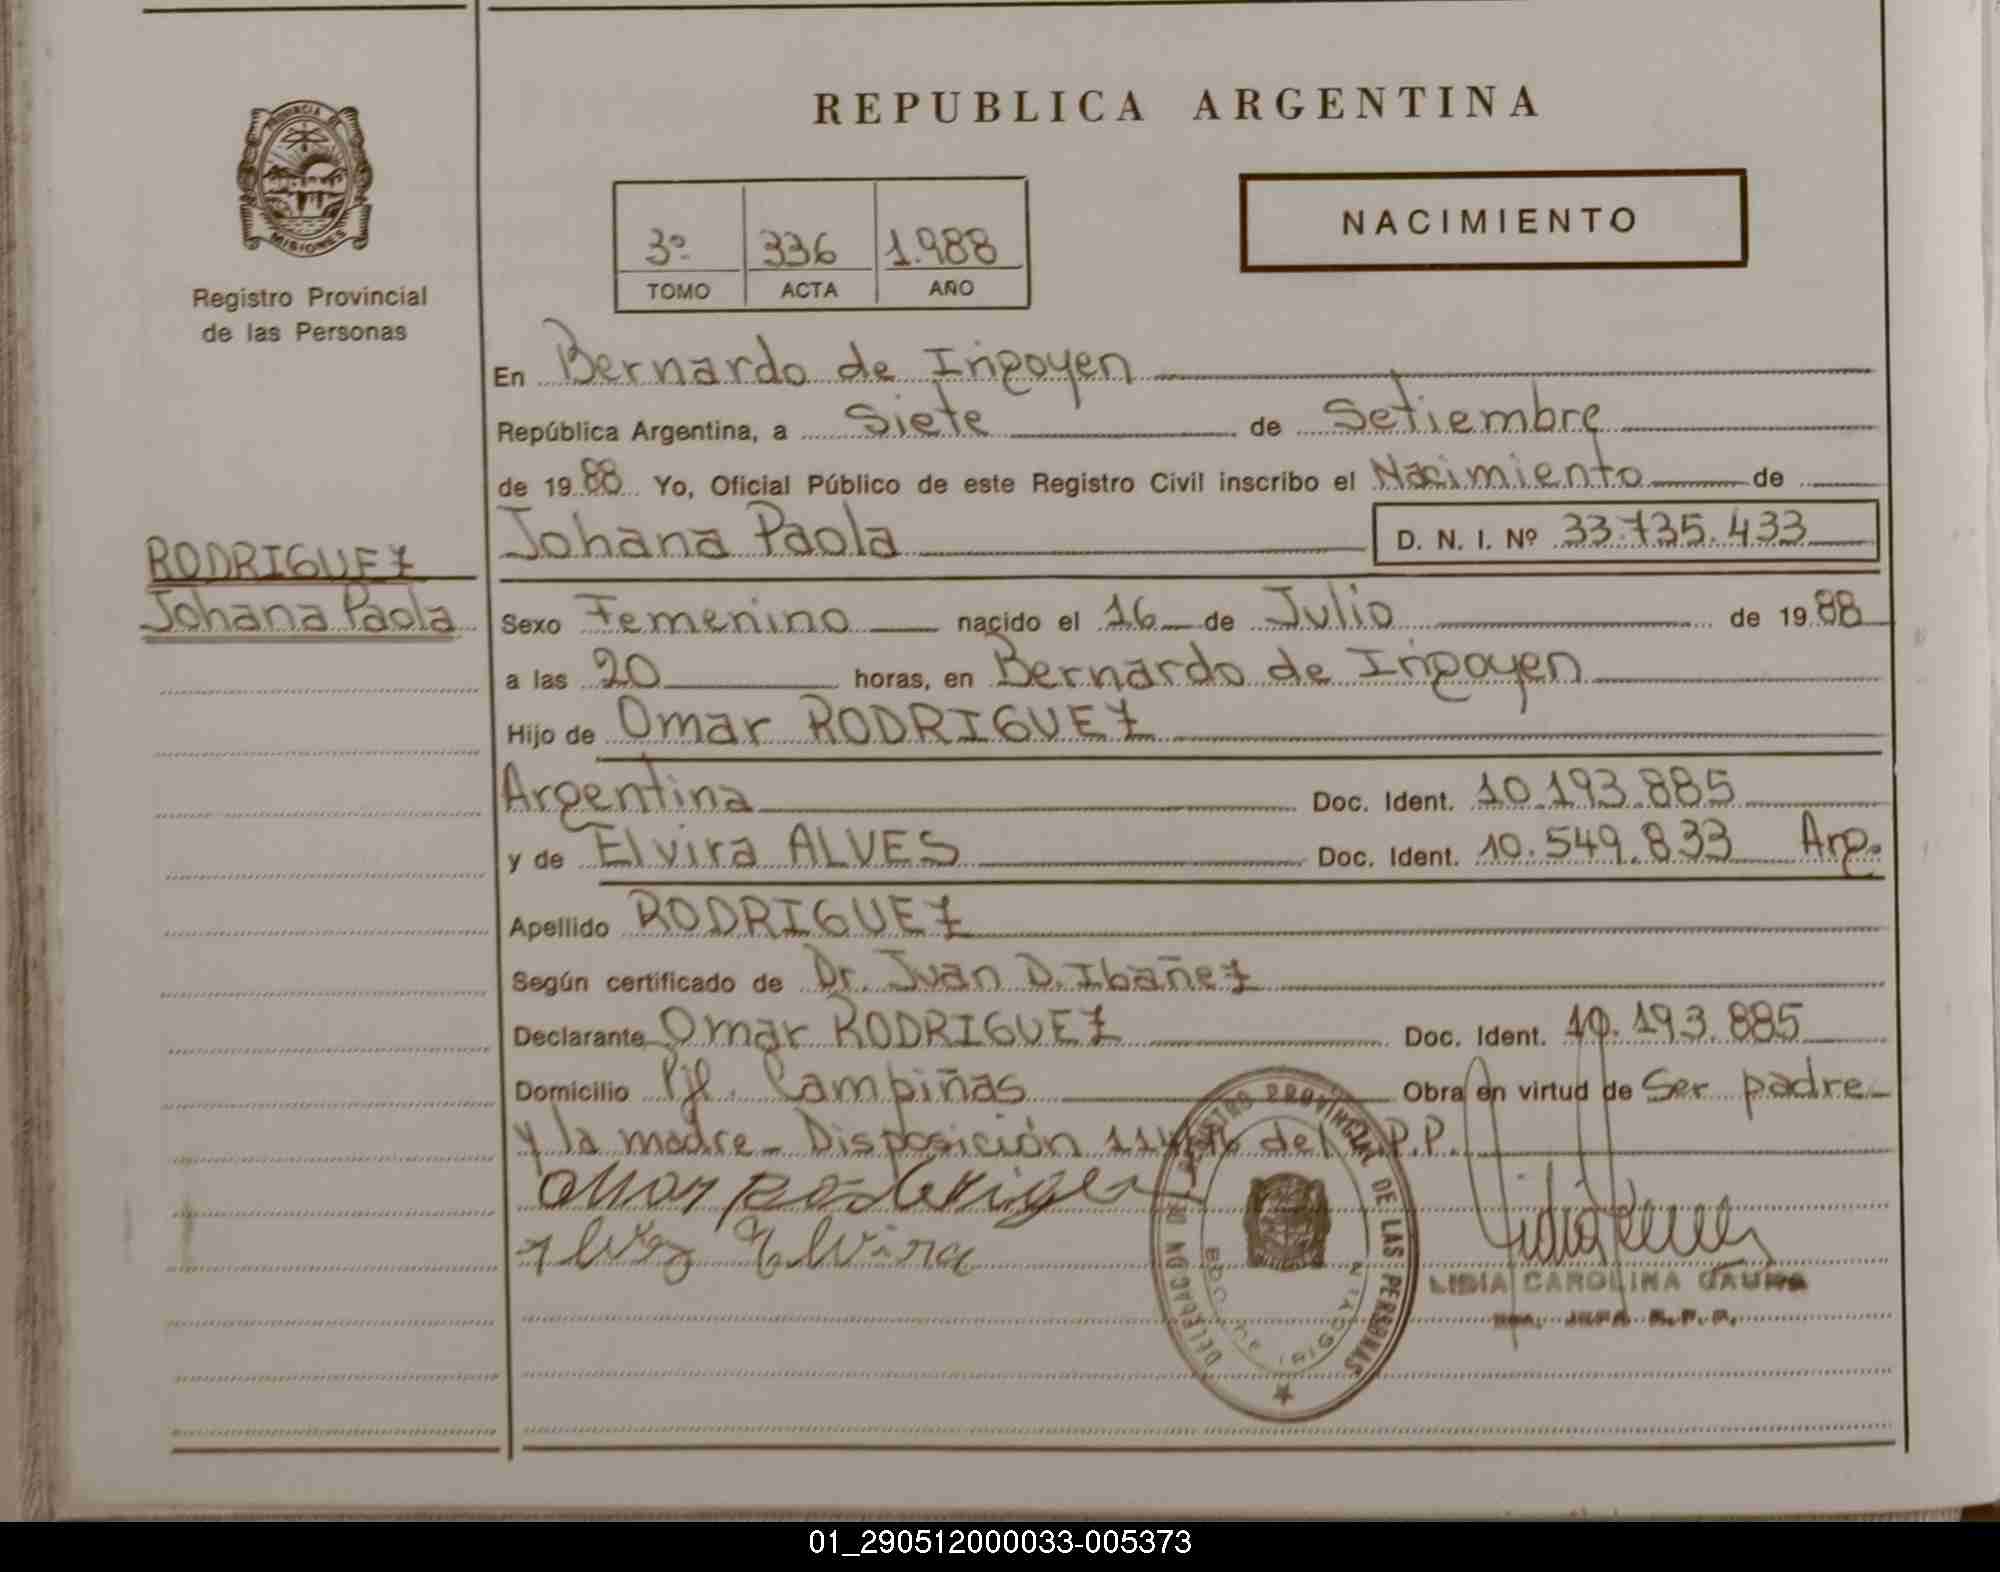 REPUBLICA ARGENTINA
PROVINCIA DE
MISIONES
Registro Provincial
de las Personas
NACIMIENTO
3º 336 1.988
TOMO ACTA AÑO
En Bernardo de Irigoyen
República Argentina, a Siete de Setiembre
de 1988 Yo, Oficial Público de este Registro Civil inscribo el Nacimiento de
Johana Paola D. N. I. Nº 33.735.433
RODRIGUEZ
Johana Paola
Sexo Femenino nacido el 16 de Julio de 1988
a las 20 horas, en Bernardo de Irigoyen
Hijo de Omar RODRIGUEZ
Argentina Doc. Ident. 10.193.885
y de Elvira ALVES Doc. Ident. 10.549.833 Arg.
Apellido RODRIGUEZ
Según certificado de Dr. Juan D. Ibañez
Declarante Omar RODRIGUEZ Doc. Ident. 10.193.885
Domicilio Pje. Campiñas Obra en virtud de Ser padre
y la madre - Disposición del P.P.
Omar Rodriguez
Alvez Elvira
REGISTRO PROVINCIAL DE LAS PERSONAS
DELEGACION
BDO. DE IRIGOYEN
LIDIA CAROLINA GAUNA
JEFA R.P.P.
01_290512000033-005373